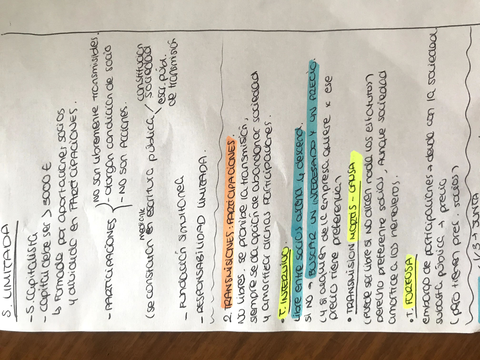 S. LIMITADA
- S. Capitalista
- capital debe ser > 3000 €
↳ formado por aportaciones socios
y dividido en PARTICIPACIONES.
- PARTICIPACIONES
- no son libremente transmisibles
- otorgan condición de socio
- NO SON ACCIONES.
(se constituye mediante en escritura pública
constitución sociedad
escr. púb. de transmisión
- FUNDACIÓN SIMULTÁNEA
- RESPONSABILIDAD LIMITADA.
2. TRANSMISIONES: PARTICIPACIONES
NO LIBRES. se prohíbe la transmisión,
siempre se da opción de abandonar sociedad
y amortizar dichas participaciones:
• T. INTERVIVOS
libre entre socios, ascend y descend.
SI NO → BUSCAR UN INTERESADO Y UN PRECIO.
(y si alguien de la empresa quiere x ese
precio tiene preferencia)
• TRANSMISION MORTIS-CAUSA
(Puede ser libre si no dicen nada los estatutos)
derecho preferente socios, aunque sociedad
admite a los herederos.
• T. FORZOSA
embargo de participaciones → deuda con la sociedad
subasta pública → precio
(pero tienen pref. socios)